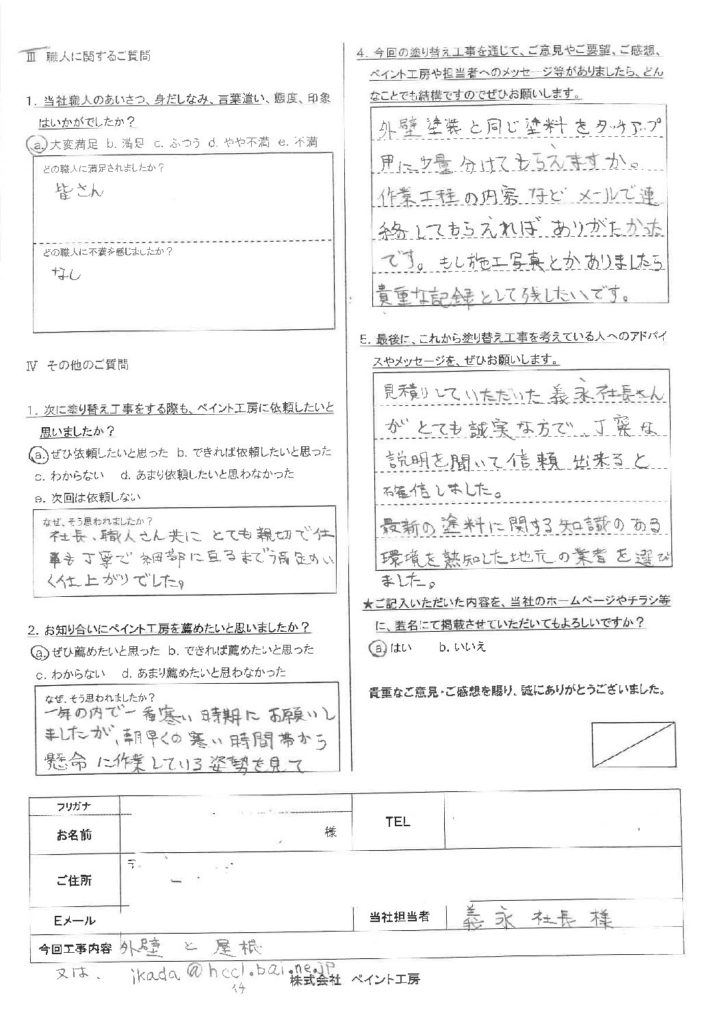 Ⅲ 職人に関するご質問
1. 当社職人のあいさつ、身だしなみ、言葉遣い、態度、印象
はいかがでしたか?
a. 大変満足 b. 満足 c. ふつう d. やや不満 e. 不満
どの職人に満足されましたか?
皆さん
どの職人に不満を感じましたか?
なし
Ⅳ その他のご質問
1. 次に塗り替え工事をする際も、ペイント工房に依頼したいと
思いましたか?
a. ぜひ依頼したいと思った b. できれば依頼したいと思った
c. わからない d. あまり依頼したいと思わなかった
e. 次回は依頼しない
なぜ、そう思われましたか?
社長、職人さん共に とても親切で仕
事も丁寧で細部に亘るまで満足のい
く仕上がりでした。
2. お知り合いにペイント工房を薦めたいと思いましたか?
a. ぜひ薦めたいと思った b. できれば薦めたいと思った
c. わからない d. あまり薦めたいと思わなかった
なぜ、そう思われましたか?
一年の内で一番寒い時期にお願いし
ましたが、朝早くの寒い時間帯から
懸命に作業している姿勢を見て
4. 今回の塗り替え工事を通じて、ご意見やご要望、ご感想、
ペイント工房や担当者へのメッセージ等がありましたら、どん
なことでも結構ですのでぜひお願いします。
外壁塗装と同じ塗料をタッチアップ
用に少量分けてもらえますか。
作業工程の内容など メールで連
絡してもらえれば ありがたかった
です。もし施工写真とかありましたら
貴重な記録として残したいです。
5. 最後に、これから塗り替え工事を考えている人へのアドバイ
スやメッセージを、ぜひお願いします。
見積りしていただいた義永社長さん
が とても誠実な方で 丁寧な
説明を聞いて信頼出来ると
確信しました。
最新の塗料に関する知識のある
環境を熟知した地元の業者を選び
ました。
★ご記入いただいた内容を、当社のホームページやチラシ等
に、匿名にて掲載させていただいてもよろしいですか?
a. はい b. いいえ
貴重なご意見・ご感想を賜り、誠にありがとうございました。
フリガナ
お名前 様 TEL
ご住所
Eメール 当社担当者 義永社長様
今回工事内容 外壁と屋根
又は、 ikada@hccl.bai.ne.jp
株式会社 ペイント工房